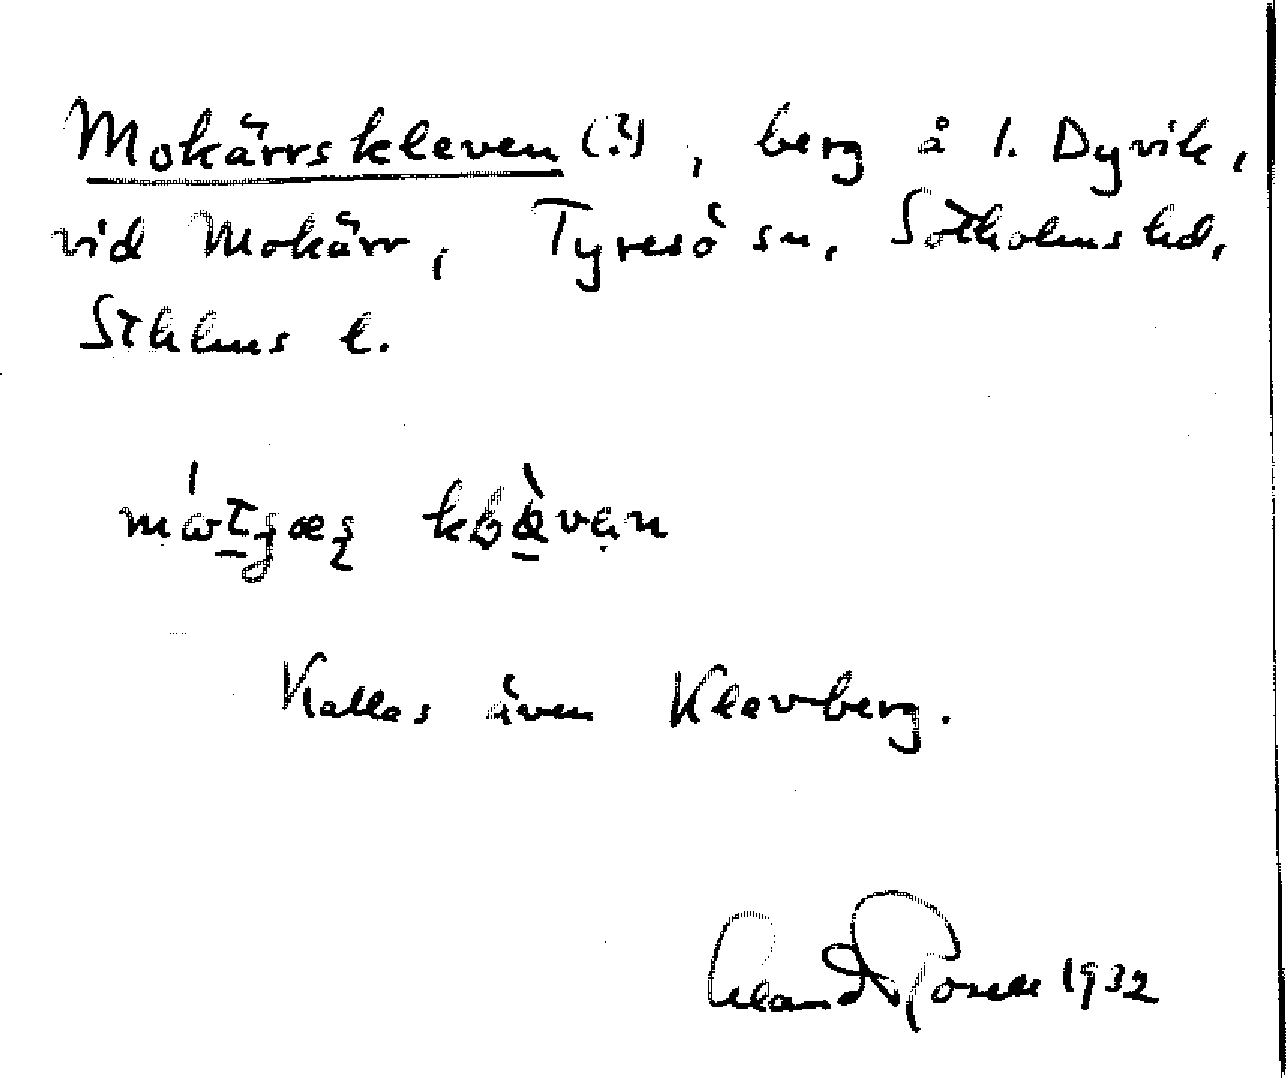 Mokärrskleven (?), berg å l. Dyvik,
vid Mokärr, Tyresö sn, Sotholms hd,
Sthlms l.
Kallas även Klevberg.
1932